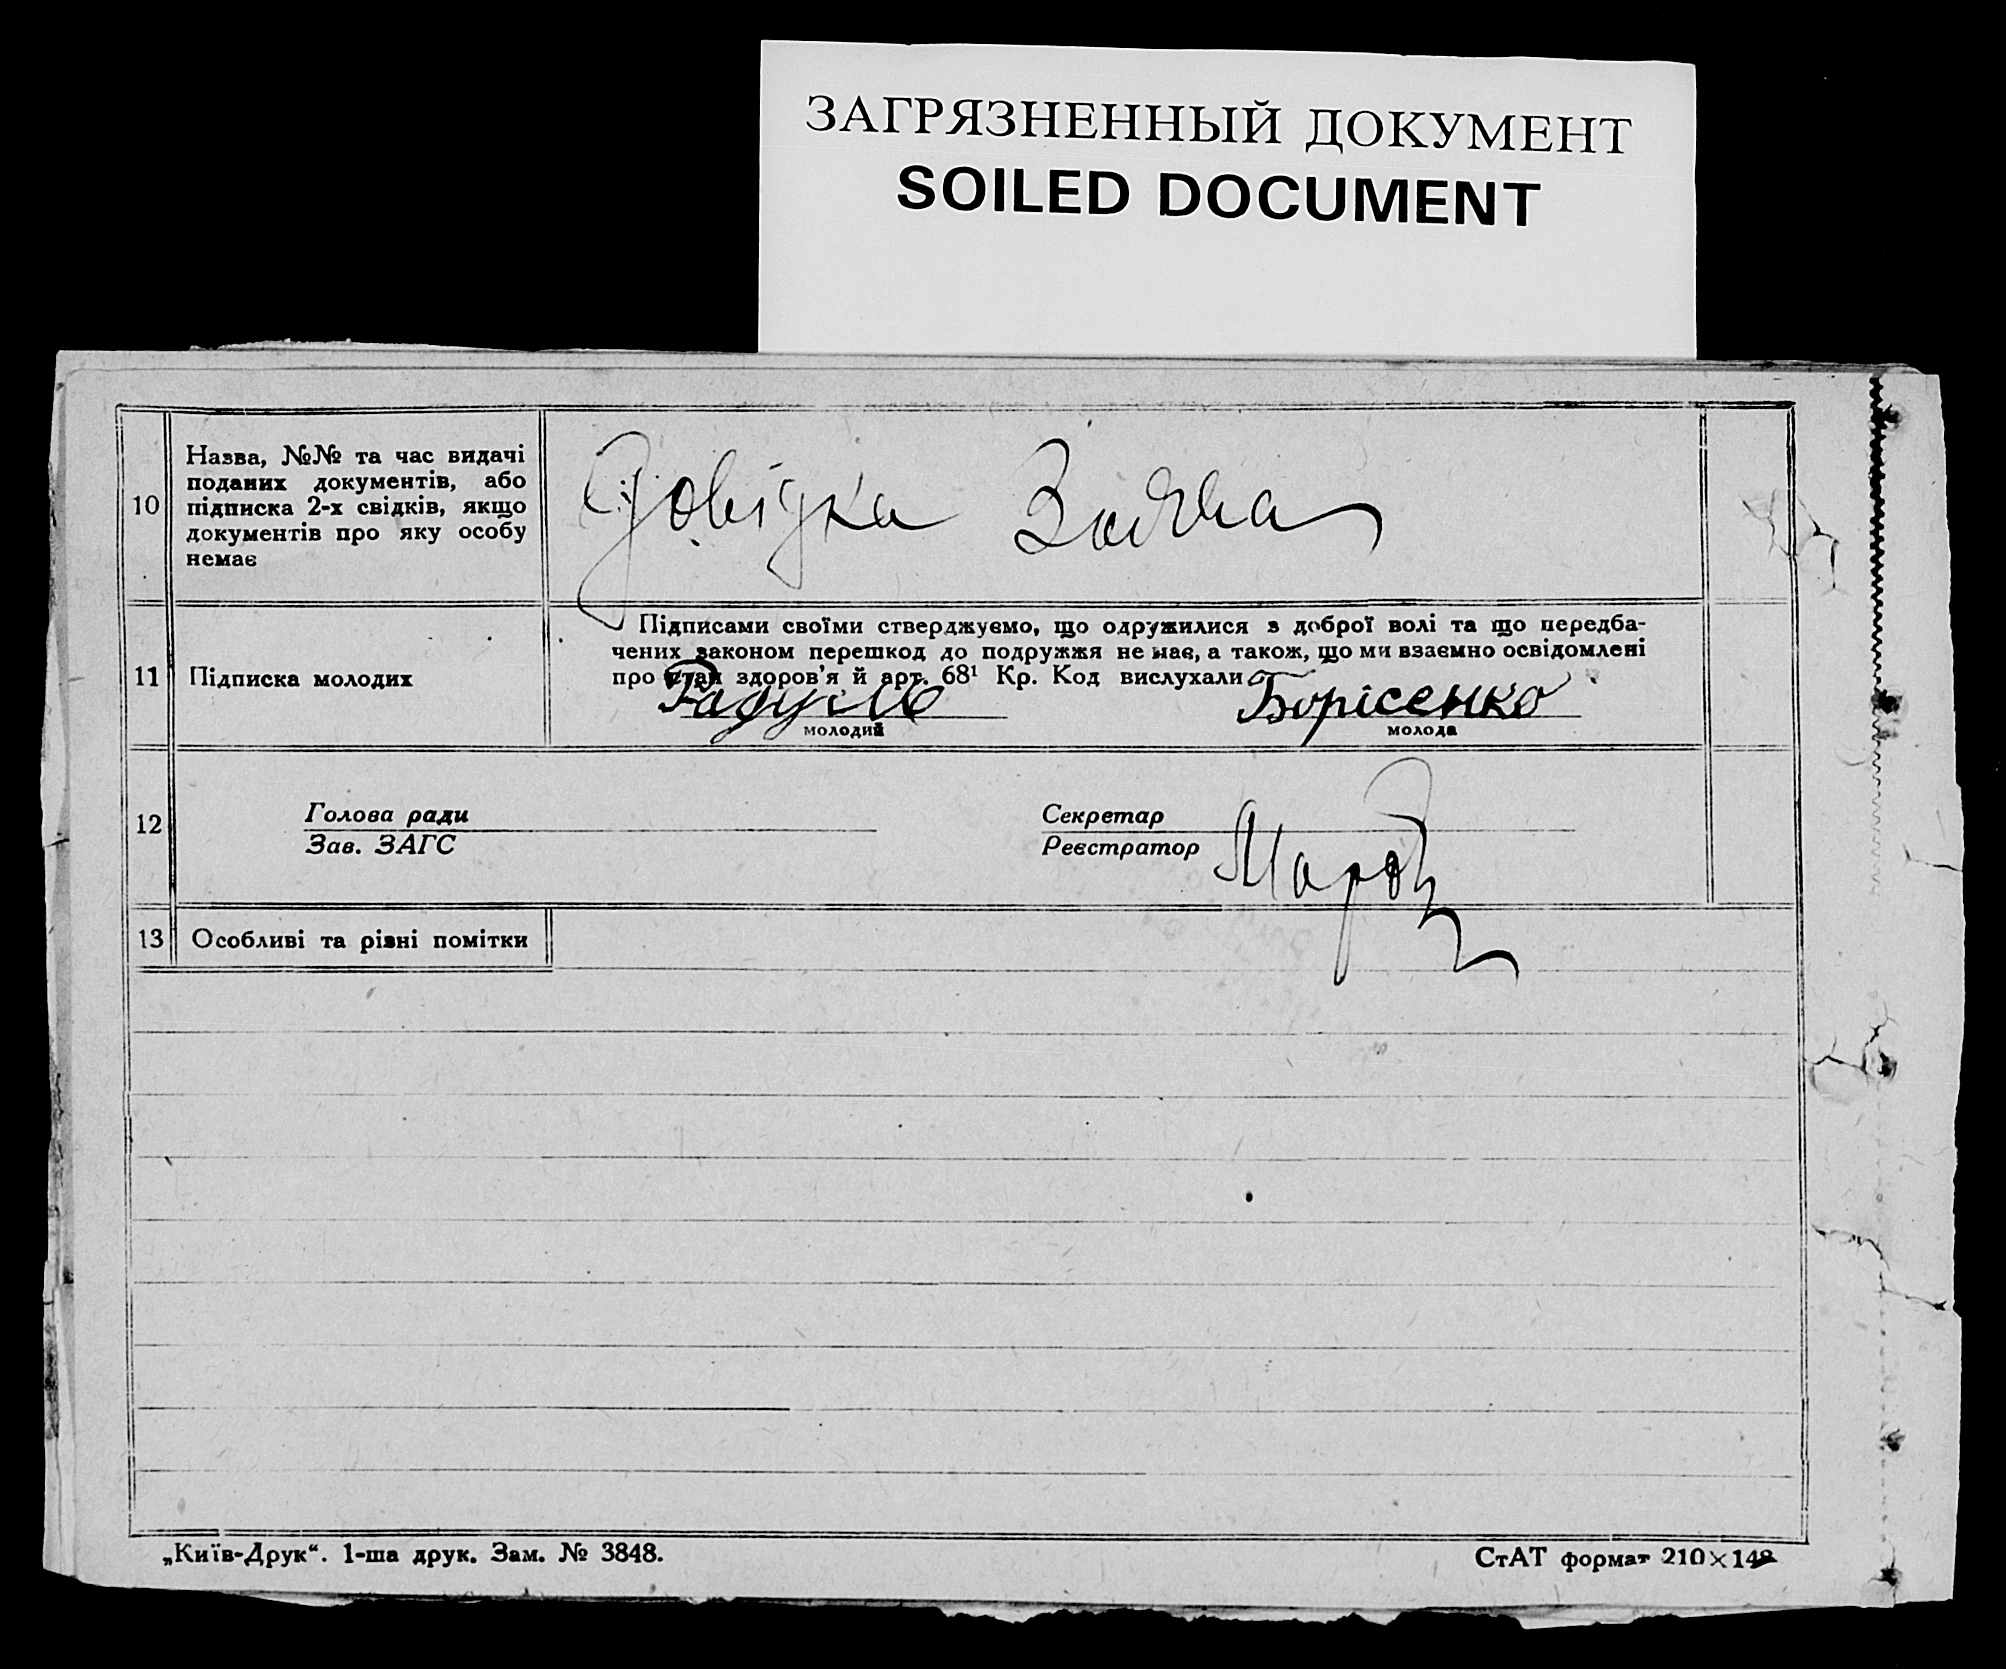 ЗАГРЯЗНЕННЫЙ ДОКУМЕНТ
SOILED DOCUMENT
10
Назва, №№ та час видачі
поданих документів, або
підписка 2-х свідків, якщо
документів про яку особу
немає
Довідка
11
Підписка молодих
Підписами своїми стверджуємо, що одружилися з доброї волі та що передба-
чених законом перешкод до подружжя не має, а також, що ми взаємно освідомлені
про стан здоров'я й арт. 68¹ Кр. Код вислухали
Борісенко
молодий
молода
12
Голова ради
Зав. ЗАГС
Секретар
Реєстратор
13
Особливі та різні помітки
„Київ-Друк“. 1-ша друк. Зам. № 3848.
СтАТ формат 210×148